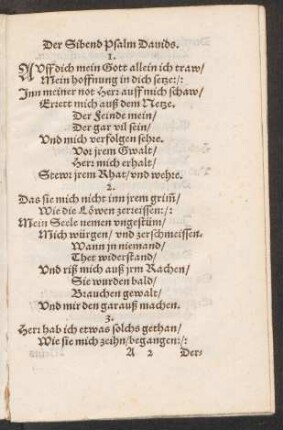 Der Sibend Psalm Dauids.
1.
AUff dich mein Gott allein ich traw/
Mein hoffnung in dich setze:/:
Inn meiner not Herr auff mich schaw/
Errett mich auß dem Netze.
Der Feinde mein/
Der gar vil sein/
Vnd mich verfolgen sehre.
Vor jrem Gwalt/
Herr mich erhalt/
Stewr jrem Rhat/vnd wehre.
2.
Das sie mich nicht inn jrem grim̃/
Wie die Löwen zerreissen:/:
Mein Seele nemen vngestüm/
Mich würgen/ vnd zerschmeissen.
Wann in niemand/
Thet widerstand/
Vnd riß mich auß jrm Rachen/
Sie wurden bald/
Brauchen gewalt/
Vnd mir den garauß machen.
3.
Herr hab ich etwas solchs gethan/
Wie sie mich zeihn/begangen:/:
A 2 Der-